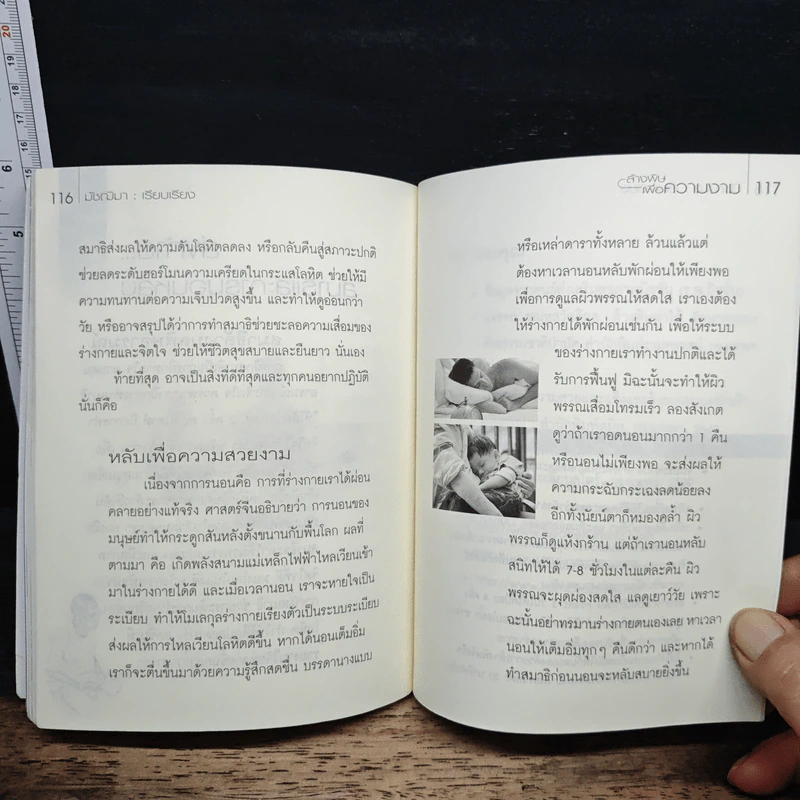 116 | มัชฌิมา : เรียบเรียง
สมาธิส่งผลให้ความดันโลหิตลดลง หรือกลับคืนสู่สภาวะปกติ
ช่วยลดระดับฮอร์โมนความเครียดในกระแสโลหิต ช่วยให้มี
ความทนทานต่อความเจ็บปวดสูงขึ้น และทำให้ดูอ่อนกว่า
วัย หรืออาจสรุปได้ว่าการทำสมาธิช่วยชะลอความเสื่อมของ
ร่างกายและจิตใจ ช่วยให้ชีวิตสุขสบายและยืนยาว นั่นเอง
ท้ายที่สุด อาจเป็นสิ่งที่ดีที่สุดและทุกคนอยากปฏิบัติ
นั่นก็คือ
หลับเพื่อความสวยงาม
เนื่องจากการนอนคือ การที่ร่างกายเราได้ผ่อน
คลายอย่างแท้จริง ศาสตร์จีนอธิบายว่า การนอนของ
มนุษย์ทำให้กระดูกสันหลังตั้งขนานกับพื้นโลก ผลที่
ตามมา คือ เกิดพลังสนามแม่เหล็กไฟฟ้าไหลเวียนเข้า
มาในร่างกายได้ดี และเมื่อเวลานอน เราจะหายใจเป็น
ระเบียบ ทำให้โมเลกุลร่างกายเรียงตัวเป็นระบบระเบียบ
ส่งผลให้การไหลเวียนโลหิตดีขึ้น หากได้นอนเต็มอิ่ม
เราก็จะตื่นขึ้นมาด้วยความรู้สึกสดชื่น บรรดานางแบบ
ล้างพิษ
เพื่อความงาม | 117
หรือเหล่าดาราทั้งหลาย ล้วนแล้วแต่
ต้องหาเวลานอนหลับพักผ่อนให้เพียงพอ
เพื่อการดูแลผิวพรรณให้สดใส เราเองต้อง
ให้ร่างกายได้พักผ่อนเช่นกัน เพื่อให้ระบบ
ของร่างกายเราทำงานปกติและได้
รับการฟื้นฟู มิฉะนั้นจะทำให้ผิว
พรรณเสื่อมโทรมเร็ว ลองสังเกต
ดูว่าถ้าเราอดนอนมากกว่า 1 คืน
หรือนอนไม่เพียงพอ จะส่งผลให้
ความกระฉับกระเฉงลดน้อยลง
อีกทั้งนัยน์ตาก็หมองคล้ำ ผิว
พรรณก็ดูแห้งกร้าน แต่ถ้าเรานอนหลับ
สนิทให้ได้ 7-8 ชั่วโมงในแต่ละคืน ผิว
พรรณจะผุดผ่องสดใส แลดูเยาว์วัย เพราะ
ฉะนั้นอย่าทรมานร่างกายตนเองเลย หาเวลา
นอนให้เต็มอิ่มทุกๆ คืนดีกว่า และหากได้
ทำสมาธิก่อนนอนจะหลับสบายยิ่งขึ้น